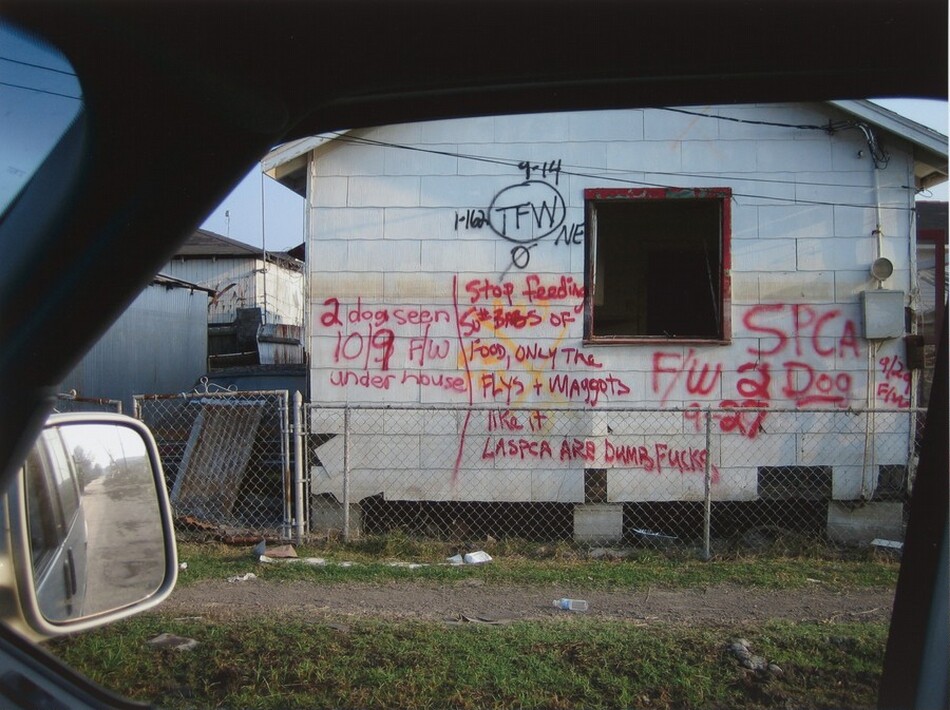 9-14
1-162 TFW NE
0
2 dog seen
10/9 F/W
under house
Stop feeding
50# BAGS OF
FOOD, ONLY THE
FLYS + MAggots
like it
LASPCA ARE DUMB FUCKS
SPCA
F/W 2 Dog
9-27
9/29
F/W